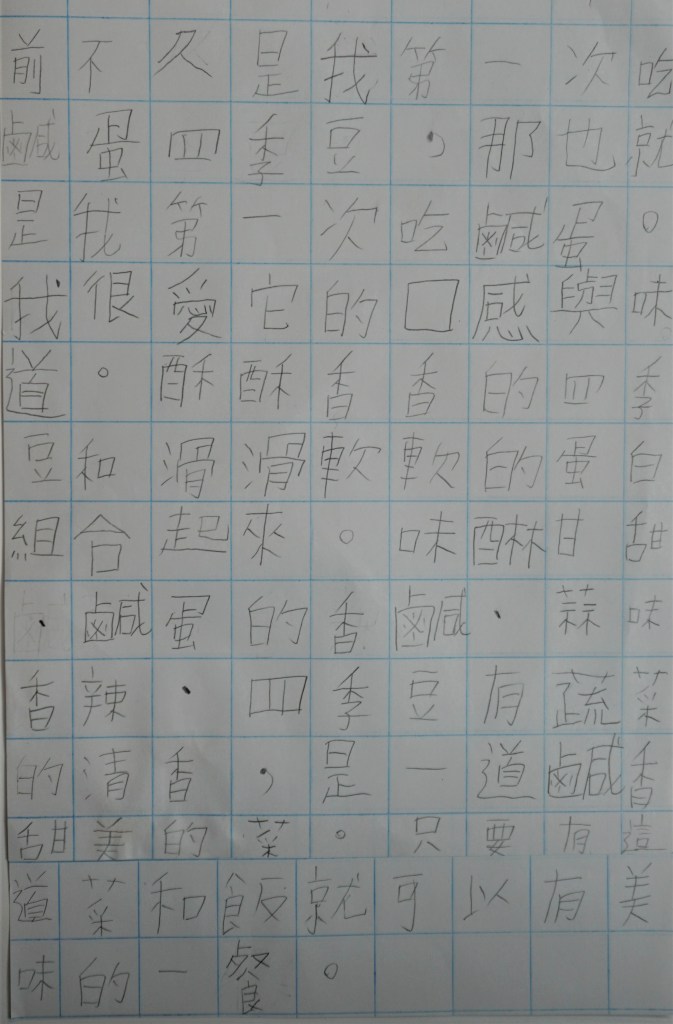 前不久是我第一次吃
鹹蛋四季豆，那也就
是我第一次吃鹹蛋。
我很愛它的口感與味
道。酥酥香香的四季
豆和滑滑軟軟的蛋白
組合起來。味醂甘甜
、鹹蛋的香鹹、蒜味
香辣、四季豆有蔬菜
的清香，是一道鹹香
甜美的菜。只要有這
道菜和飯就可以有美
味的一餐。